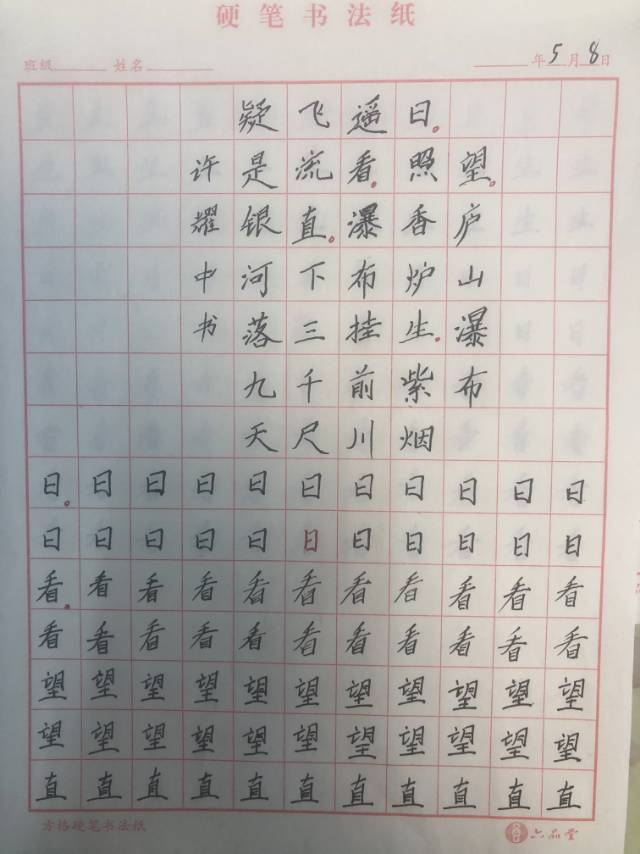 硬笔书法纸
班级 姓名 年5月8日
望庐山瀑布
日照香炉生紫烟
遥看瀑布挂前川
飞流直下三千尺
疑是银河落九天
许耀中书
日日日日日日日日日日日
日日日日日日日日日日日
看看看看看看看看看看看
看看看看看看看看看看看
望望望望望望望望望望望
望望望望望望望望望望望
直直直直直直直直直直直
方格硬笔书法纸 六品堂